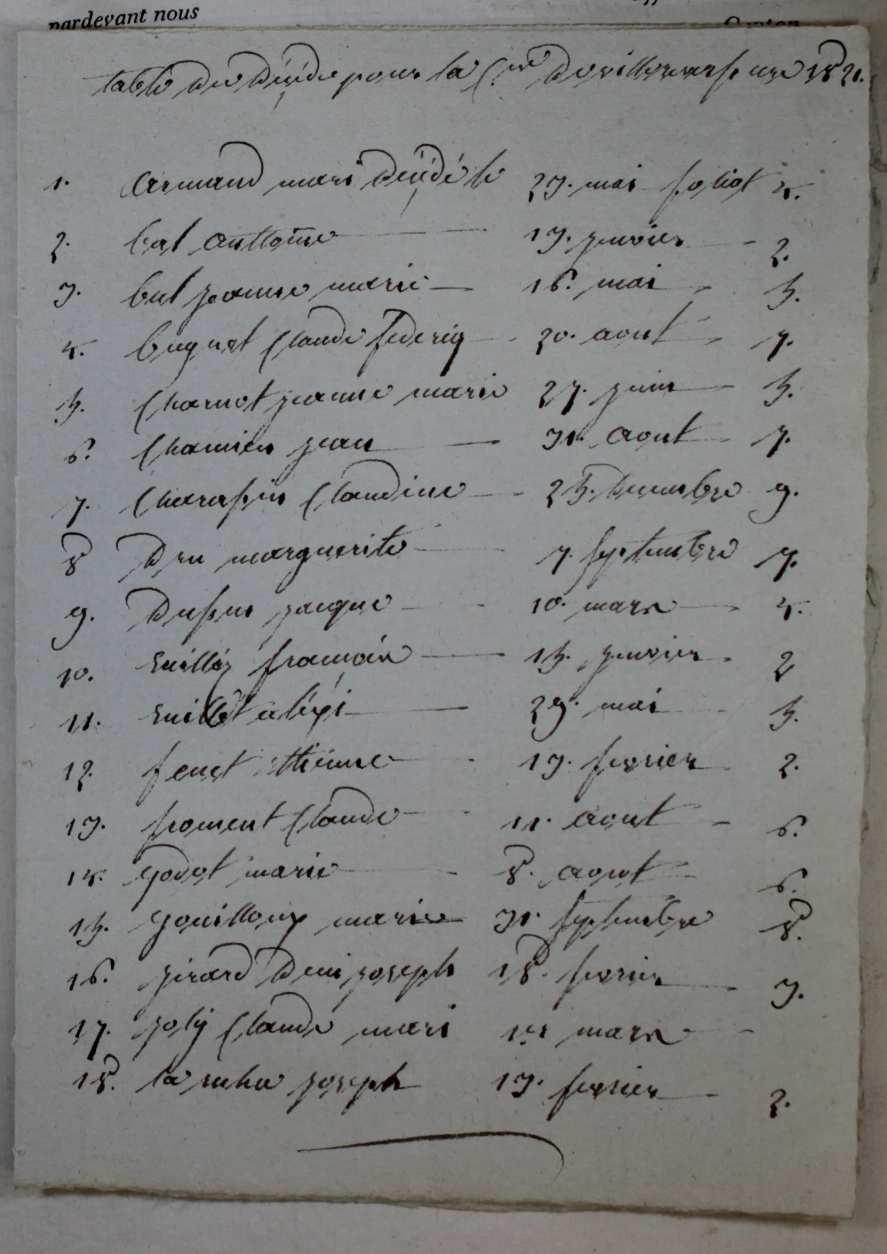 pardevant nous
Canton
table des décés pour la C.ne de villereversure 1821.
1. armand marie décédé le 23. mai foliot 4.
2. bal anttoine 13. janvier 2.
3. bal jeanne marie 16. mai 5.
4. buguet Claude federiq 20. aout 7.
5. Charnot jeanne marie 27. juin 5.
6. Chanien jean 31. aout 7.
7. Charassin Claudine 25. decembre 9.
8 Dru marguerite 7. septembre 7.
9. Dupuis jacque 10. mars 4.
10. françois 15. janvier 2
11. 29. mai 5.
12. feuet ethienne 13. fevrier 2.
13. froment Claude 11. aout 6.
14. godot marie 8. aout 6.
15. gouilloux marie 31. septembre 8.
16. girard Deni joseph 18. fevrier 3.
17. joly Claude mari 1er mars
18. la ruha joseph 13. fevrier 2.